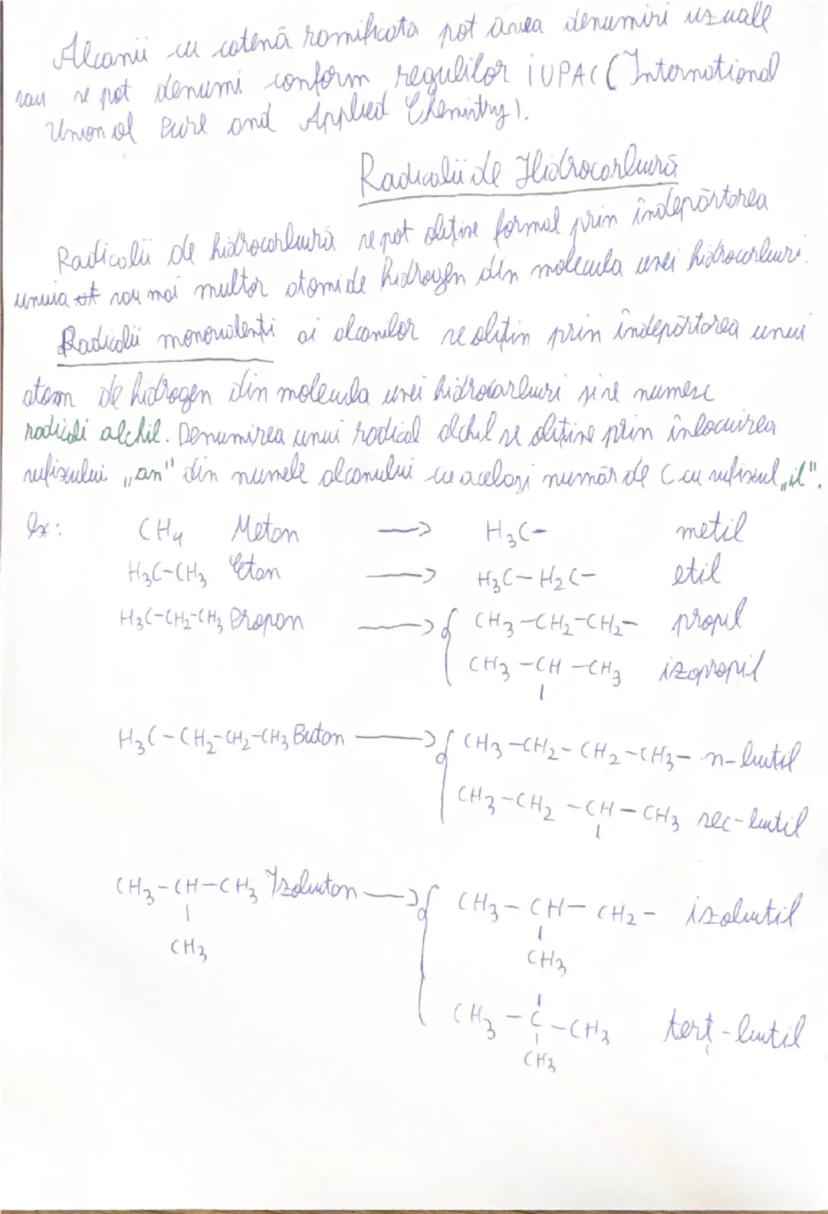 Alcanii cu catenă ramificată pot avea denumiri uzuale
sau se pot denumi conform regulilor IUPAC (International
Union of Pure and Applied Chemistry).
Radicalii de Hidrocarbură
Radicalii de hidrocarbură se pot obține formal prin îndepărtarea
unuia sau mai multor atomi de hidrogen din molecula unei hidrocarburi.
Radicalii monovalenți ai alcanilor se obțin prin îndepărtarea unui
atom de hidrogen din molecula unei hidrocarburi și se numesc
radicali alchil. Denumirea unui radical alchil se obține prin înlocuirea
sufixului „an" din numele alcanului cu același număr de C cu sufixul „il".
Ex: CH4 Metan → H3C- metil
H3C-CH3 Etan → H3C-H2C- etil
H3C-CH2-CH3 Propan → { CH3-CH2-CH2- propil
CH3-CH-CH3 izopropil
|
H3C-CH2-CH2-CH3 Butan → { CH3-CH2-CH2-CH3- n-butil
CH3-CH2-CH-CH3 sec-butil
|
CH3-CH-CH3 Izobutan → { CH3-CH-CH2- izobutil
| |
CH3 CH3
|
CH3-C-CH3 terț-butil
|
CH3